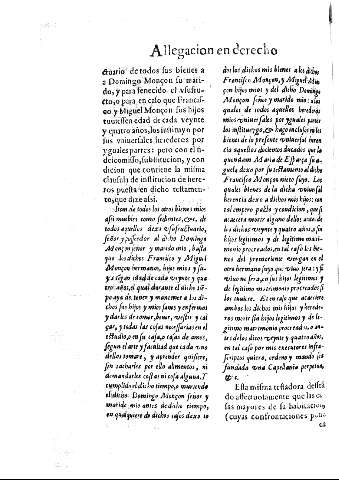 Allegacion en derecho
ctuario de todos sus bienes a
a Domingo Monçon su mari-
do, y para fenecido el vsufru-
cto, o para en caso que Francis-
co y Miguel Monçon sus hijos
tuuiessen edad de cada veynte
y quatro años, los instituyo por
sus vniuersales herederos por
yguales partes: pero con el fi-
deicomisso, substitucion, y con
dicion que contiene la misma
clausula de institucion de here-
ros puesta en dicho testamen-
to, que dize assi.
Item de todos los otros bienes mios
assi muebles como sedientes, &c. de
todos aquellos dexo vsufructuario,
señor y posseedor al dicho Domingo
Monçon señor y marido mio, hasta
que los dichos Francisco y Miguel
Monçon hermanos, hijos mios y su-
yos sean de edad de cada veynte y qua
tro años, el qual durante el dicho tiem-
po aya de tener y mantener a los di-
chos sus hijos y mios sanos y enfermos
y darles de comer, beuer, vestir y cal
çar, y todas las cosas necessarias en el
estudio, o en su casa, o casas de amos,
segun el arte y facultad que cada vno
dellos tomare, y aprender quisiere,
sin sacarles por ello alimentos, ni
demandarles costas ni cosa alguna. Y
cumplido el dicho tiempo, o muriendo
el dicho Domingo Monçon señor y
marido mio antes de dicho tiempo,
en qualquiere de dichos casos dexo to
dos los dichos mis bienes a los dichos
Francisco Monçon, y Miguel Mon-
çon hijos mios y del dicho Domingo
Monçon señor y marido mio: a los
quales de todos aquellos herederos
mios vniuersales por yguales partes
los instituezgo, &c. hago inclusos en los
bienes de la presente vniuersal heren
cia aquellos dozientos ducados que la
quondam Maria de Esparça su a-
guela dexo por su testamento al dicho
Francisco Monçon nieto suyo. Los
quales bienes de la dicha vniuersal
herencia dexo a dichos mis hijos: con
tal empero pacto y condicion, que si
acaeciere morir alguno dellos antes de
los dichos veynte y quatro años, sin
hijos legitimos y de legitimo matri-
monio procreados, en tal caso los bie-
nes del premoriente vengan en el
otro hermano suyo que viuo sera: y si
viuo no sera, en sus hijos legitimos y
de legitimo matrimonio procreados si
los tuuiere. Et en caso que acaeciere
ambos los dichos mis hijos y herede-
ros morir sin hijos legitimos y de le-
gitimo matrimonio procreados, o an-
tes de los dichos veynte y quatro años,
en tal caso por mis executores infra-
scriptos quiero, ordeno y mando sea
fundada vna Capellania perpetua,
&c.
Esta misma testadora desseā
do affectuosamente que las ca
sas mayores de su habitacion
(cuyas confrontaciones puso
en